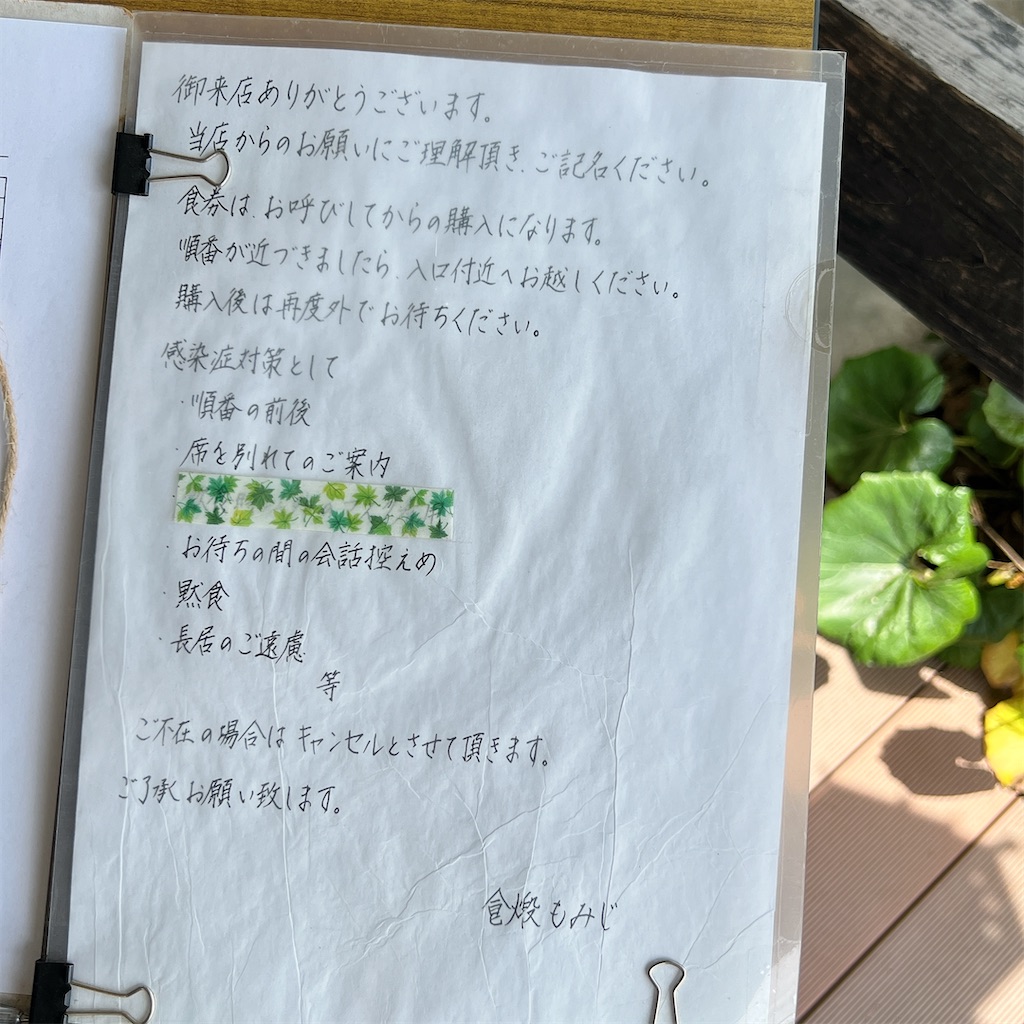 御来店ありがとうございます。
当店からのお願いにご理解頂き、ご記名ください。
食券は、お呼びしてからの購入になります。
順番が近づきましたら、入口付近へお越しください。
購入後は再度外でお待ちください。
感染症対策として
・順番の前後
・席を別れてのご案内
・お待ちの間の会話控えめ
・黙食
・長居のご遠慮
等
ご不在の場合はキャンセルとさせて頂きます。
ご了承お願い致します。
もみじ